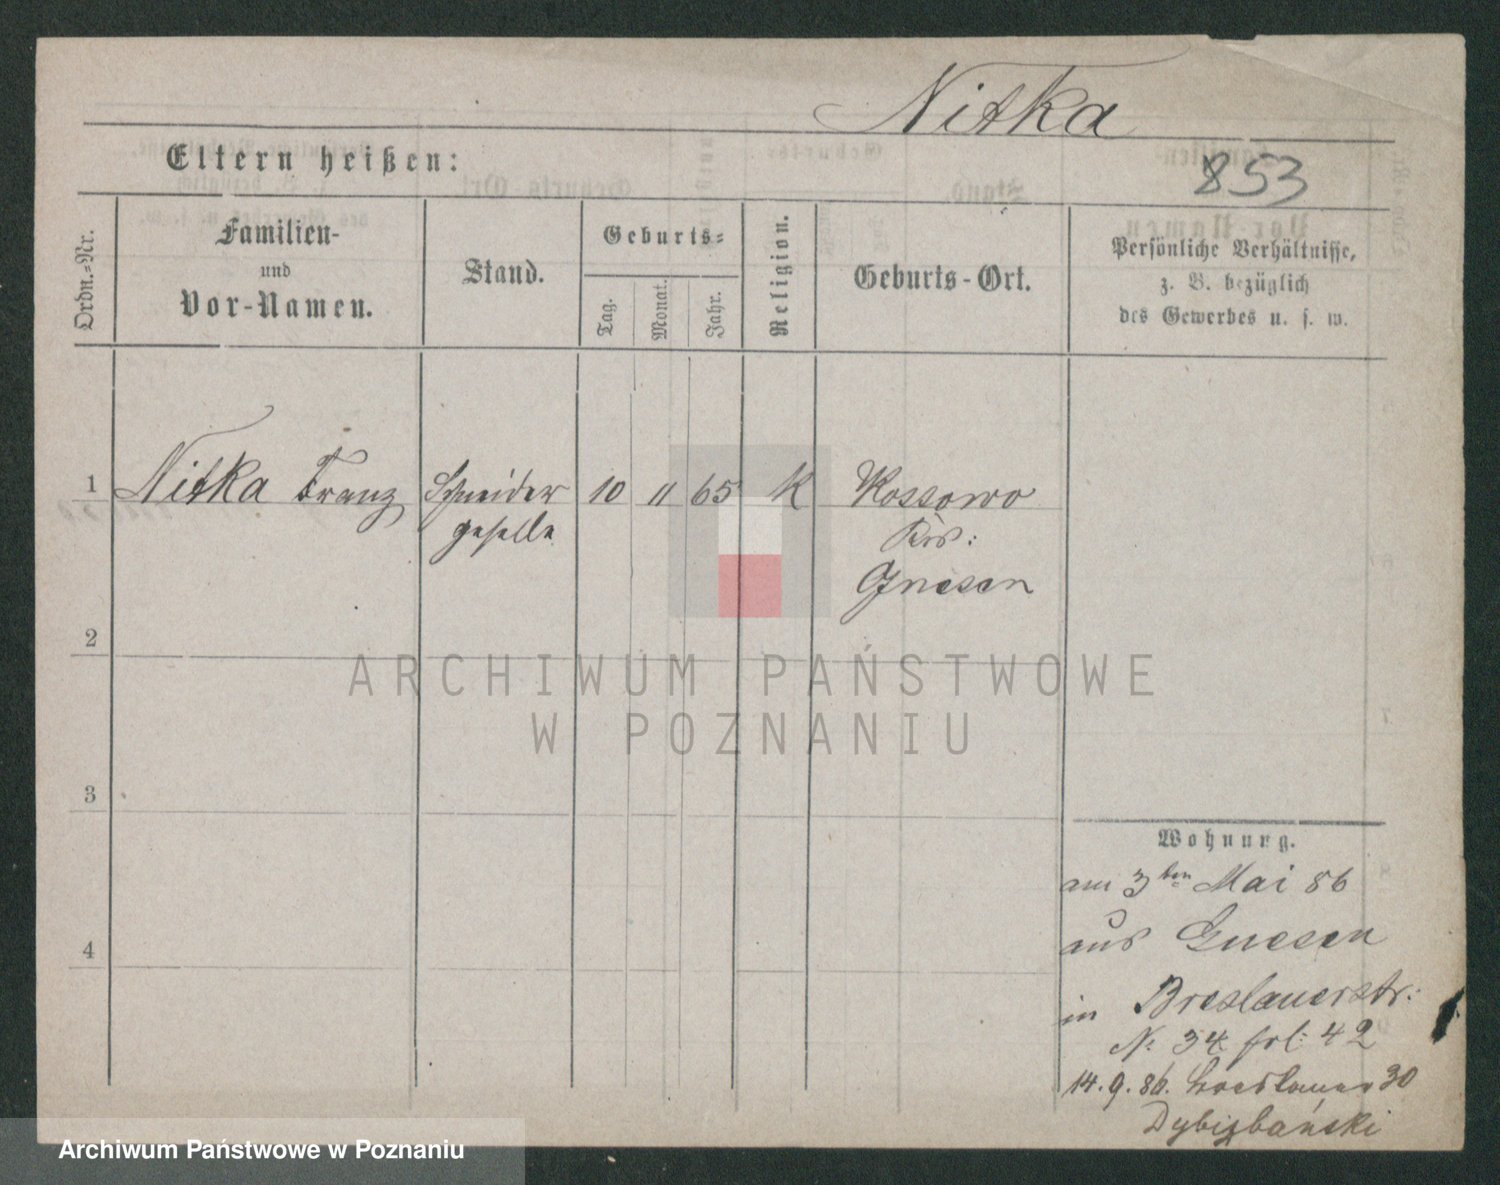 Nitka
Eltern heißen:
853
Ordn.=Nr.
Familien-
und
Vor-Namen.
Stand.
Geburts=
Tag.
Monat.
Jahr.
Religion.
Geburts-Ort.
Persönliche Verhältnisse,
z. B. bezüglich
des Gewerbes u. s. w.
1 Nitka Franz Schneider 10 11 65 K Kossowo
geselle Krs:
Gnesen
2
3
4
ARCHIWUM PAŃSTWOWE
W POZNANIU
Wohnung.
am 3ten Mai 86
aus Gnesen
in Breslauerstr:
No 34 fol: 42
14.9.86. Breslauer 30
Dybizbański
Archiwum Państwowe w Poznaniu